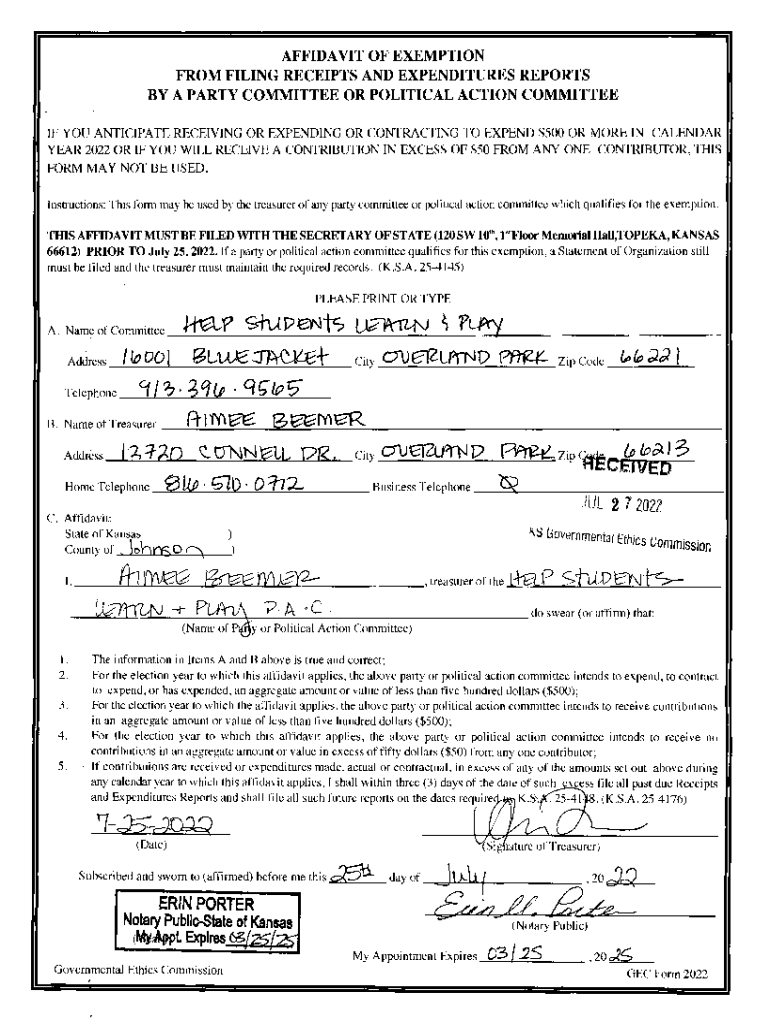 AFFIDAVIT OF EXEMPTION
FROM FILING RECEIPTS AND EXPENDITURES REPORTS
BY A PARTY COMMITTEE OR POLITICAL ACTION COMMITTEE
IF YOU ANTICIPATE RECEIVING OR EXPENDING OR CONTRACTING TO EXPEND $500 OR MORE IN CALENDAR
YEAR 2022 OR IF YOU WILL RECEIVE A CONTRIBUTION IN EXCESS OF $50 FROM ANY ONE CONTRIBUTOR, THIS
FORM MAY NOT BE USED.
Instructions: This form may be used by the treasurer of any party committee or political action committee which qualifies for the exemption.
THIS AFFIDAVIT MUST BE FILED WITH THE SECRETARY OF STATE (120 SW 10th, 1st Floor Memorial Hall, TOPEKA, KANSAS
66612) PRIOR TO July 25, 2022. If a party or political action committee qualifies for this exemption, a Statement of Organization still
must be filed and the treasurer must maintain the required records. (K.S.A. 25-4145)
PLEASE PRINT OR TYPE
A. Name of Committee HELP STUDENTS LEARN & PLAY
Address 16001 BLUEJACKET City OVERLAND PARK Zip Code 66221
Telephone 913.396.9565
B. Name of Treasurer AIMEE BEEMER
Address 12720 CONNELL DR. City OVERLAND PARK Zip Code 66213
RECEIVED
Home Telephone 816.510.0712 Business Telephone Ø
JUL 27 2022
C. Affidavit:
State of Kansas )
KS Governmental Ethics Commission
County of Johnson )
I, AIMEE BEEMER, treasurer of the HELP STUDENTS
LEARN + PLAY P.A.C. do swear (or affirm) that:
(Name of Party or Political Action Committee)
1. The information in Items A and B above is true and correct;
2. For the election year to which this affidavit applies, the above party or political action committee intends to expend, to contract
to expend, or has expended, an aggregate amount or value of less than five hundred dollars ($500);
3. For the election year to which the affidavit applies, the above party or political action committee intends to receive contributions
in an aggregate amount or value of less than five hundred dollars ($500);
4. For the election year to which this affidavit applies, the above party or political action committee intends to receive no
contributions in an aggregate amount or value in excess of fifty dollars ($50) from any one contributor;
5. If contributions are received or expenditures made, actual or contractual, in excess of any of the amounts set out above during
any calendar year to which this affidavit applies, I shall within three (3) days of the date of such excess file all past due Receipts
and Expenditures Reports and shall file all such future reports on the dates required by K.S.A. 25-4148. (K.S.A. 25-4176)
7-25-2022
(Date) (Signature of Treasurer)
Subscribed and sworn to (affirmed) before me this 25th day of July, 2022
ERIN PORTER
Notary Public-State of Kansas
My Appt. Expires 03/25/25
Erin M. Porter
(Notary Public)
My Appointment Expires 03/25, 2025
Governmental Ethics Commission GEC Form 2022